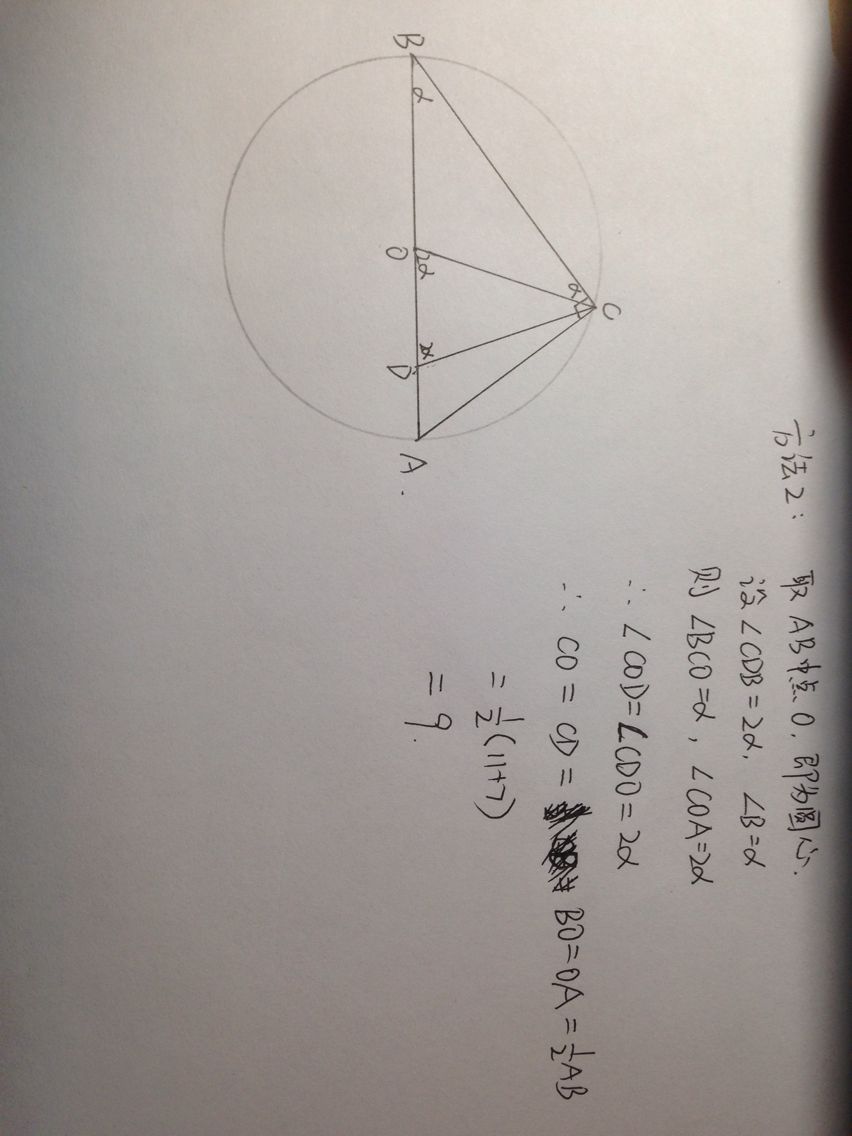 B
α
O
2α
D
2α
A.
C
α
方法2: 取AB中点O,即为圆心.
设∠CDB=2α, ∠B=α
则∠BCO=α, ∠COA=2α
∴ ∠COD=∠CDO=2α
∴ CO=CD= BO=OA=½AB
=½(11+7)
=9.